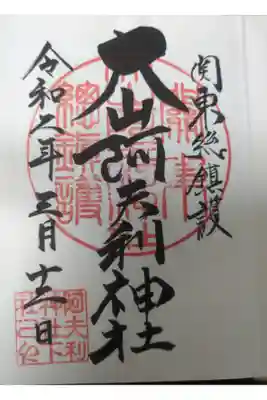 関東総鎮護
大山阿夫利神社
令和二年三月十二日
總鎮護
阿夫利
神社下
社之印